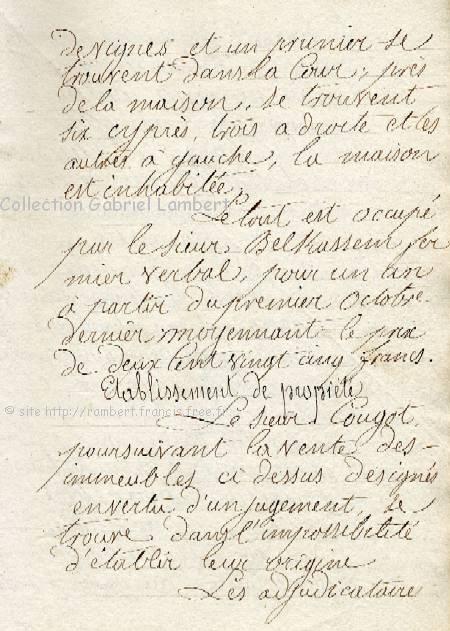 de vignes et un prunier se
trouvent dans la Cour; près
de la maison, se trouvent
six cyprès, trois a droite et les
autres à gauche, la maison
est inhabitée,
Collection Gabriel Lambert
Le tout est occupé
par le sieur Belkassem fer
mier verbal, pour un an
à partir du premier Octobre
dernier moyennant le prix
de deux cent vingt cinq francs.
Etablissement de propriété
© site http://rambert.francis.free.fr
Le sieur Cougot
poursuivant la vente des
immeubles ci dessus designés
en vertu d'un jugement, se
trouve dans l'impossibilité
d'établir leur origine
Les adjudicataire